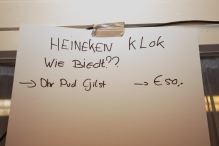 HEINEKEN KLOK
WIE BIEDT??
→ Dhr Pud Gilst → €50,-